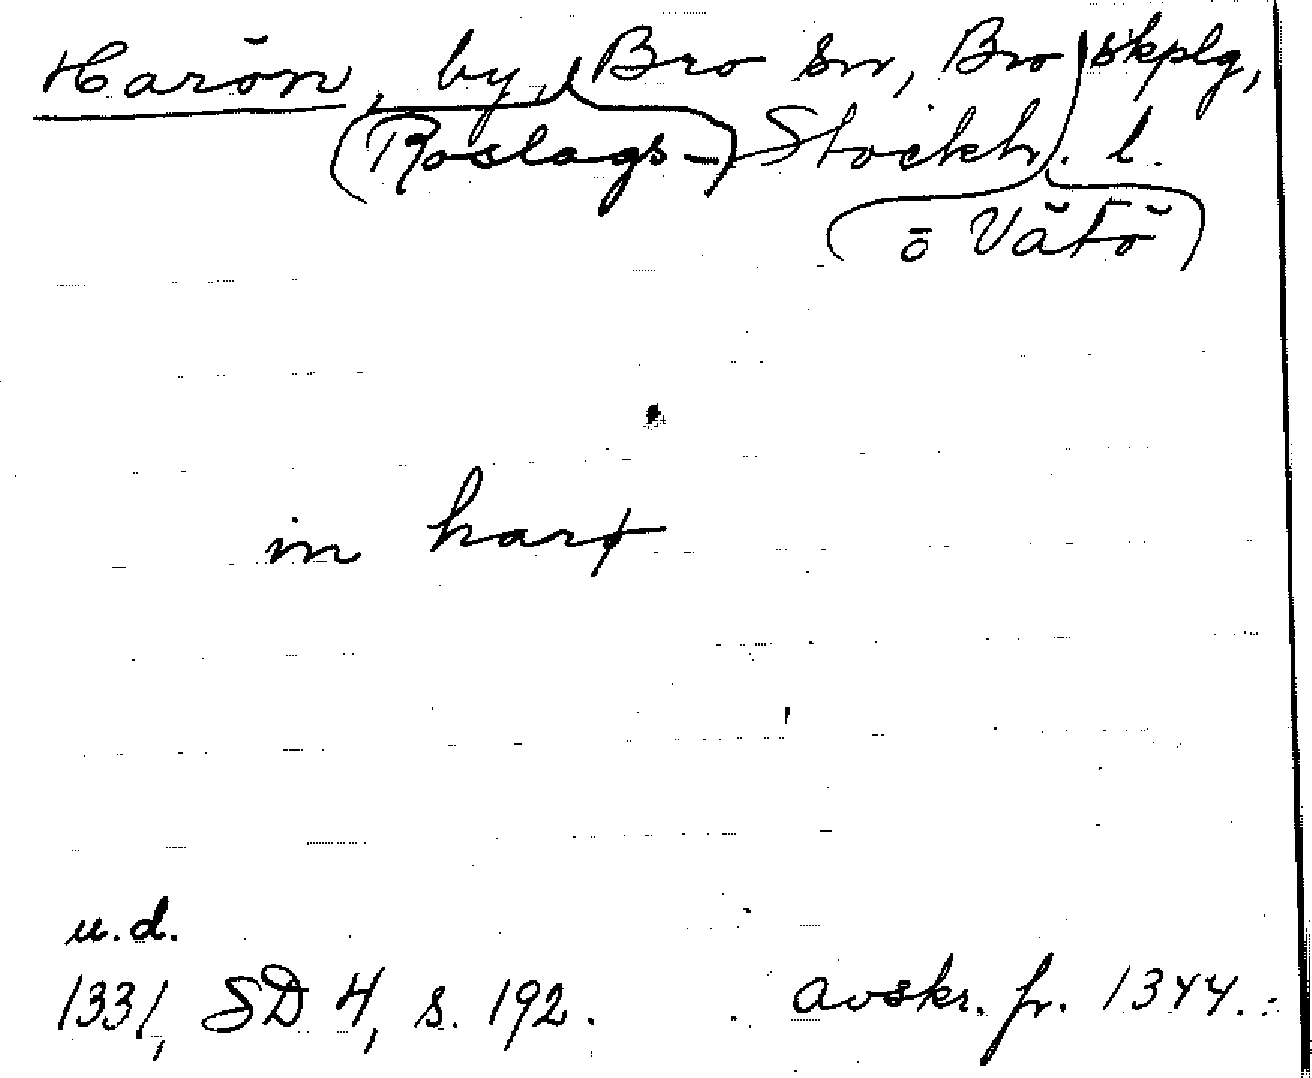 Harön, by, Bro sn, Bro skplg,
(Roslags-) Stockh. l.
(ö Vätö)
in harø
u.d.
1331, SD 4, s. 192. avskr. fr. 1344.